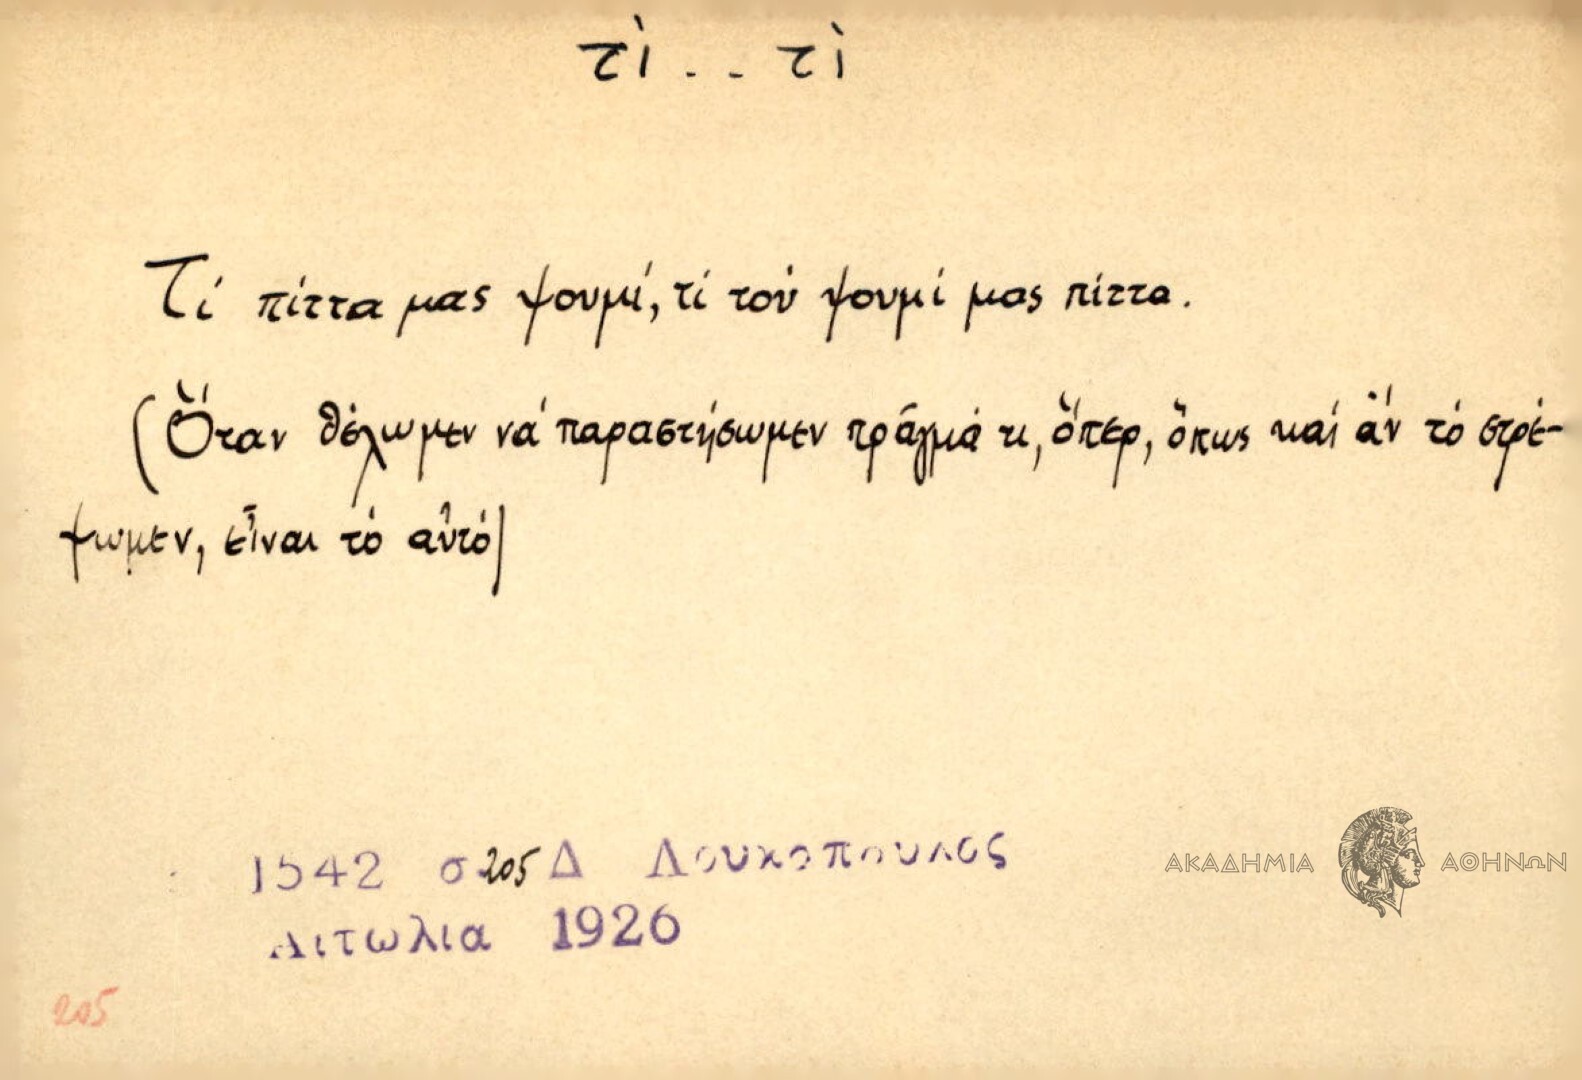 τὶ . . τὶ
Τί πίττα μας ψουμί, τί τού ψουμί μας πίττα.
(Ὅταν θέλωμεν νά παραστήσωμεν πρᾶγμά τι, ὅπερ, ὅπως καί ἄν τό στρέ-
ψωμεν, εἶναι τό αὐτό)
1542 σ 205 Δ Λουκοπουλος
Αιτωλια 1926
ΑΚΑΔΗΜΙΑ ΑΘΗΝΩΝ
205